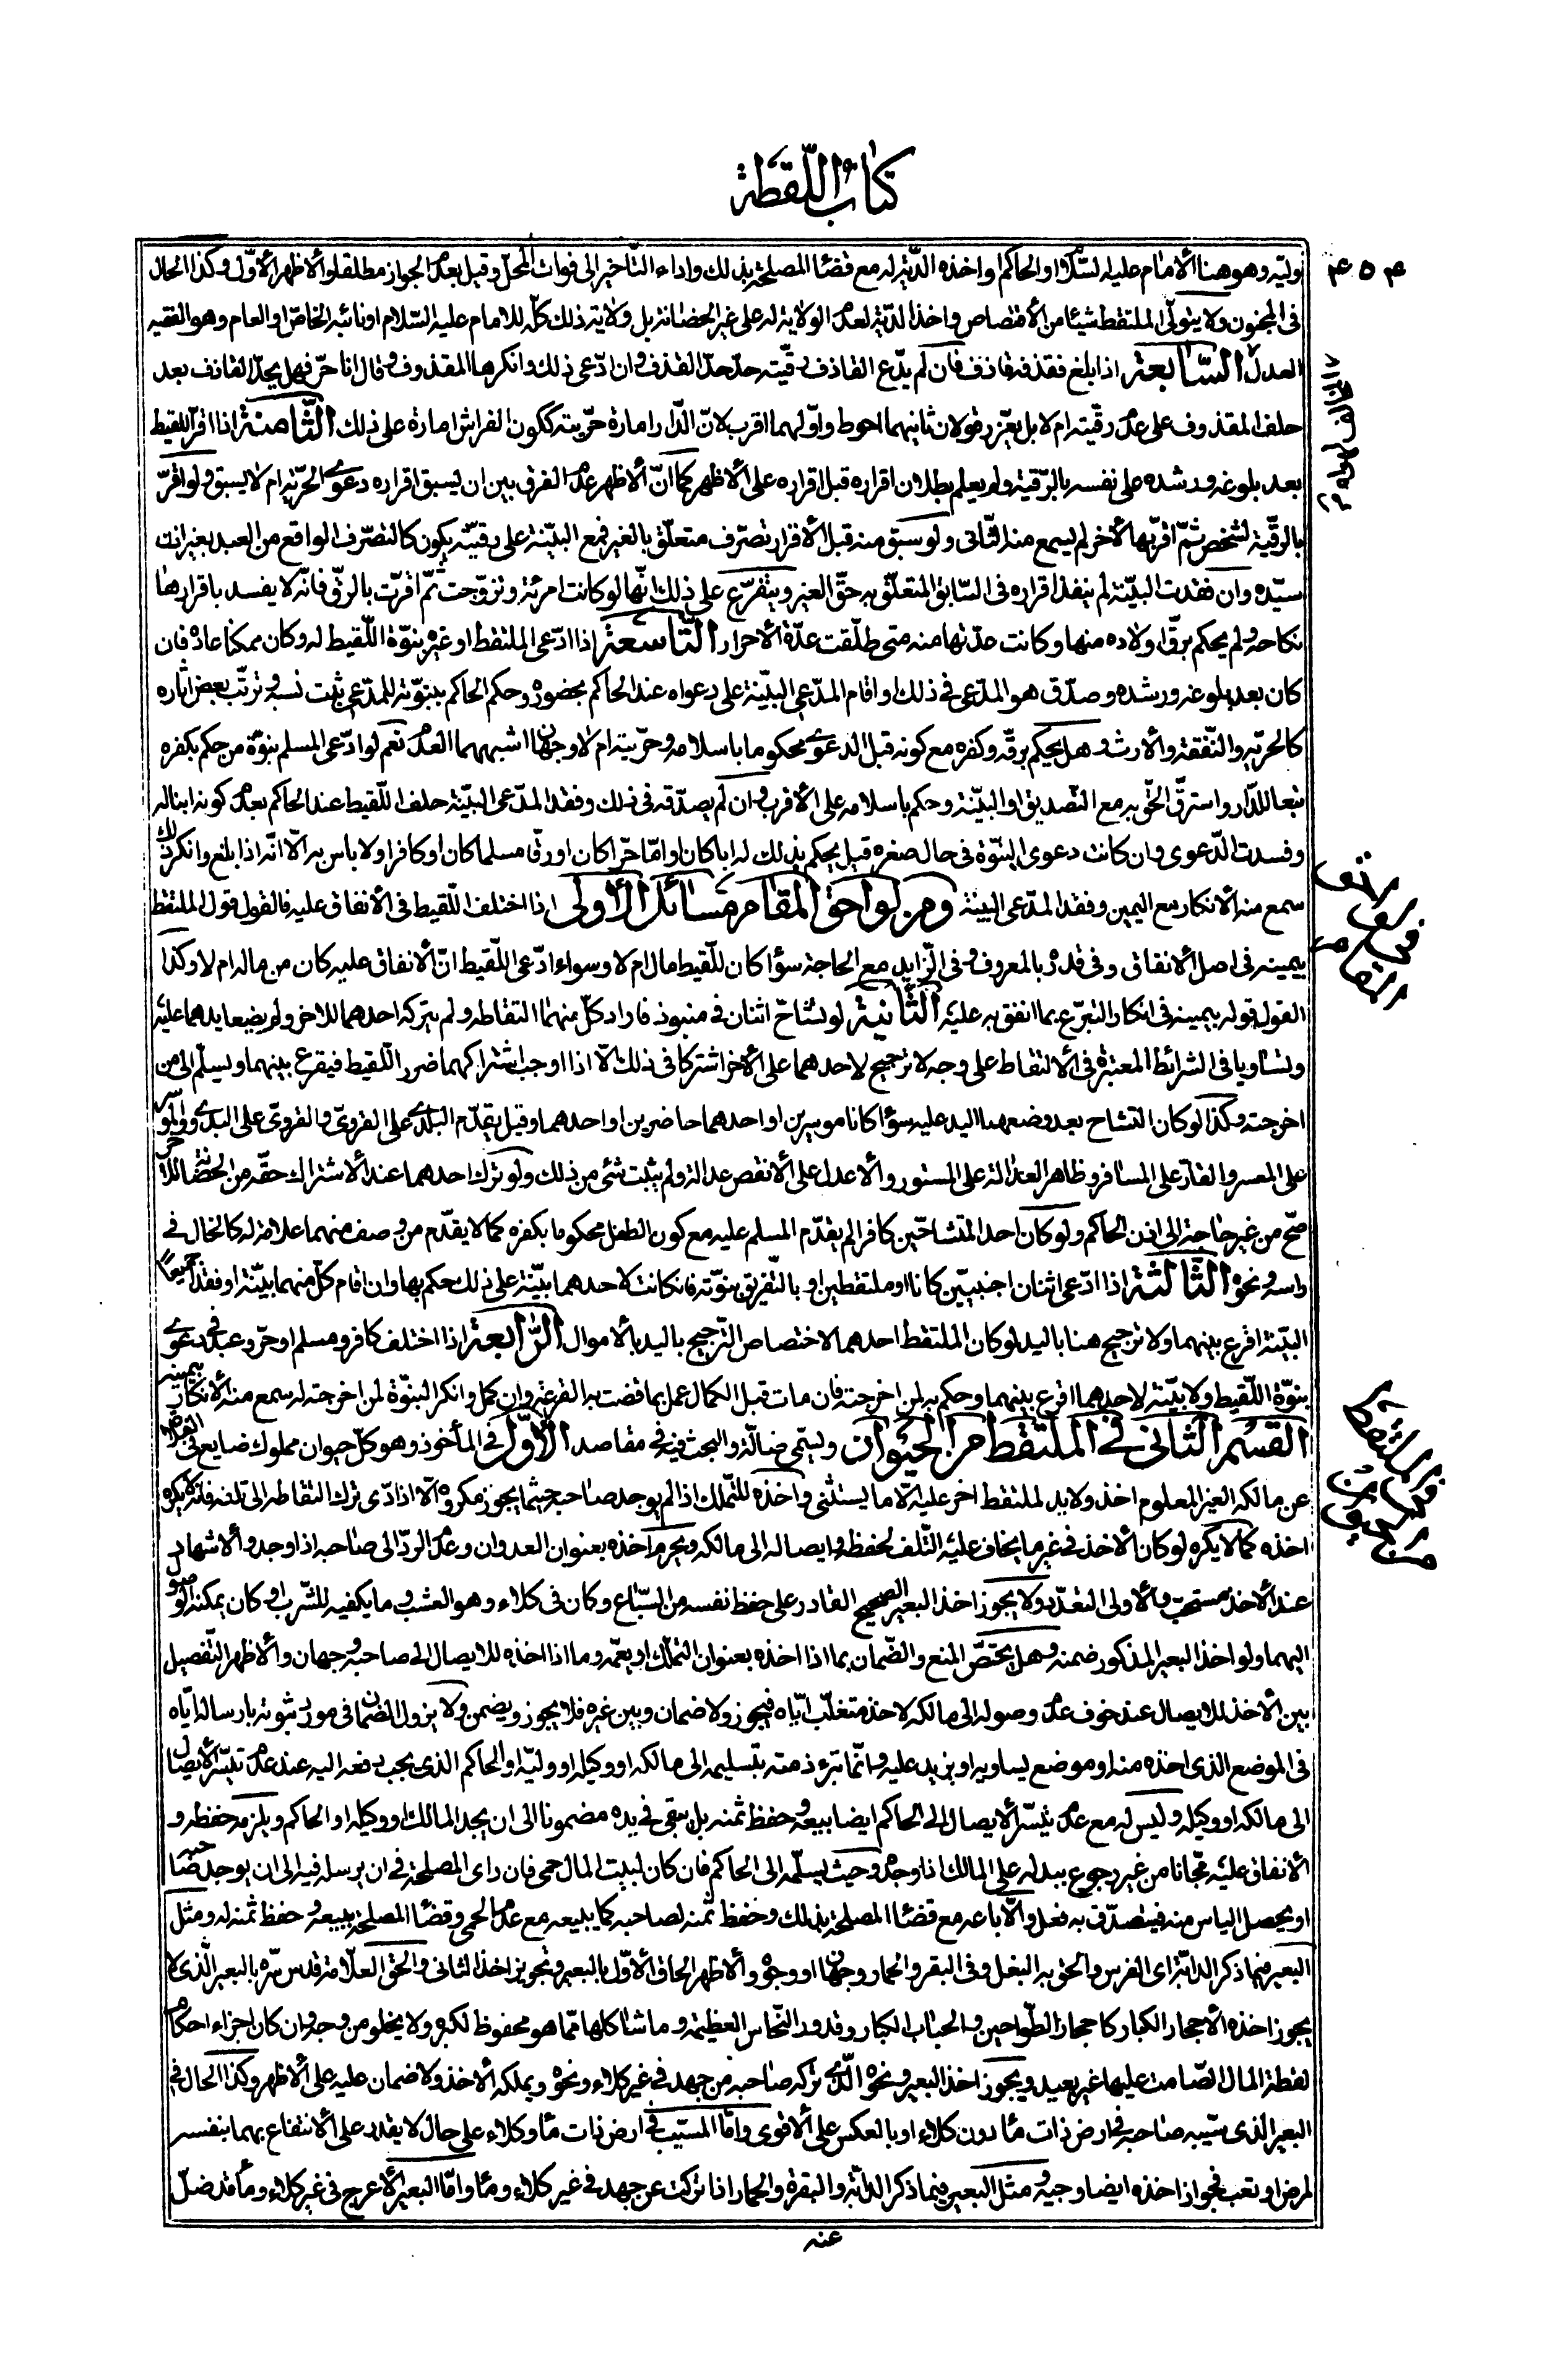 كتاب اللقطة
وليه وهو هنا الإمام عليه السلام او الحاكم واخذه الدية له مع قضاء المصلحة بذلك واداء التأخير الى فوات المحل وقيل بعدم الجواز مطلقا والاظهر الاول وكذا الحال
في المجنون ولا يتولى الملتقط شيئا من الاقتصاص واخذ الدية لعدم الولاية له على غير الحضانة بل ولاية ذلك كله للامام عليه السلام او نائبه الخاص او العام وهو الفقيه
العدل السابعة اذا بلغ فقذفه قاذف فان لم يدع القاذف رقيته حد حد القذف وان ادعى ذلك وانكرها المقذوف وقال انا حر فهل يحد القاذف بعد
حلف المقذوف على عدم رقيته ام لا بل يعزر قولان ثانيهما احوط واولهما اقرب لان الدار امارة حريته ككون الفراش امارة على ذلك الثامنة اذا اقر اللقيط
بعد بلوغه ورشده على نفسه بالرقية ولم يعلم بطلان اقراره قبل اقراره على الاظهر كما ان الاظهر عدم الفرق بين ان يسبق اقراره دعوى الحرية ام لا يسبق ولو اقر
بالرقية لشخص ثم اقر بها لاخر لم يسمع منه الثاني ولو سبق منه قبل الاقرار تصرف متعلق بالغير فمع البينة على رقيته يكون كالتصرف الواقع من العبد بغير اذن
سيده وان فقدت البينة لم ينفذ اقراره في السابق المتعلق به حق الغير ويتفرع على ذلك انها لو كانت امرئة وتزوجت ثم اقرت بالرق فانه لا يفسد باقرارها
نكاحه ولم يحكم برق اولاده منها وكانت عدتها منه متى طلقت عدة الاحرار التاسعة اذا ادعى الملتقط او غيره بنوة اللقيط له وكان ممكنا عادة فان
كان بعد بلوغه ورشده وصدق هو المدعي في ذلك او اقام المدعي البينة على دعواه عند الحاكم بحضوره وحكم الحاكم ببنوته للمدعي ثبت نسبه وترتب بعض اثاره
كالحرية والنفقة والارث وهل يحكم برقه وكفره مع كونه قبل الدعوى محكوما باسلامه وحريته ام لا وجهان اشبههما العدم نعم لو ادعى المسلم بنوة من حكم بكفره
تبعا للدار واسترق الحق به مع التصديق او البينة وحكم باسلامه على الاقرب وان لم يصدقه في ذلك وفقد المدعي البينة حلف اللقيط عند الحاكم بعدم كونه ابنا له
وفسدت الدعوى وان كانت دعوى البنوة في حال صغره قبل يحكم بذلك له ابا كان او اما حرا كان او رقا مسلما كان او كافرا ولا باس به الا انه اذا بلغ وانكر ذلك
سمع منه الانكار مع اليمين وفقد المدعي البينة ومن لواحق المقام مسائل الاولى اذا اختلف اللقيط في الانفاق عليه فالقول قول الملتقط
بيمينه في اصل الانفاق وفي قدره بالمعروف وفي الزايد مع الحاجة سواء كان للقيط مال ام لا وسواء ادعى اللقيط ان الانفاق عليه كان من ماله ام لا وكذا
القول قوله بيمينه في انكار التبرع بما انفق به عليه الثانية لو تشاح اثنان في منبوذ فاراد كل منهما التقاطه ولم يتركه احدهما للاخر ولم يضعا يدهما عليه
وتساويا في الشرائط المعتبرة في الالتقاط على وجه لا ترجيح لاحدهما على الاخر اشتركا في ذلك الا اذا اوجب اشتراكهما ضرر اللقيط فيقرع بينهما ويسلم الى من
اخرجته وكذا لو كان التشاح بعد وضعهما اليد عليه سواء كانا موسرين او احدهما حاضرين او احدهما وقيل يقدم البلدي على القروي والقروي على البدوي والموسر
على المعسر والقار على المسافر وظاهر العدالة على المستور والاعدل على الانقص عدالة ولم يثبت شئ من ذلك ولو ترك احدهما عند الاشتراك حقه من الحضانة للاخر
صح من غير حاجة الى اذن الحاكم ولو كان احد المتشاحين كافرا لم يقدم المسلم عليه مع كون الطفل محكوما بكفره كما لا يقدم من وصف منهما علامة له كالخال في
راسه ونحوه الثالثة اذا ادعى اثنان اجنبيين كانا او ملتقطين او بالتفريق بنوته فان كانت لاحدهما بينة على ذلك حكم بها وان اقام كل منهما بينة او فقدا جميعا
البينة اقرع بينهما ولا ترجيح هنا باليد لو كان الملتقط احدهما لاختصاص الترجيح باليد بالاموال الرابعة اذا اختلف كافر ومسلم او حر وعبد في دعوى
بنوة اللقيط ولا بينة لاحدهما اقرع بينهما وحكم به لمن اخرجته فان مات قبل الكمال عمل بما قضت به القرعة وان كمل وانكر البنوة لمن اخرجته له سمع منه الانكار بيمينه
القسم الثاني في الملتقط من الحيوان ويسمى ضالة والبحث فيه في مقاصد الاول في المأخوذ وهو كل حيوان مملوك ضايع في
عن مالكه الغير المعلوم اخذ ولا يد لملتقط اخر عليه الا ما يستثنى واخذه للتملك اذا لم يوجد صاحبه حيثما يجوز مكروه الا اذا ادى ترك التقاطه الى تلفه فانه لا يكره
اخذه كما لا يكره لو كان الاخذ في غير ما يخاف عليه التلف لحفظه وايصاله الى مالكه ويحرم اخذه بعنوان العدوان وعدم الرد الى صاحبه اذا وجد والاشهاد
عند الاخذ مستحب والاولى التعدد ولا يجوز اخذ البعير الصحيح القادر على حفظ نفسه من السباع وكان في كلاء وهو العشب وما يكفيه للشرب او كان يمكنه الوصول
اليهما ولو اخذ البعير المذكور ضمنه وهل يختص المنع والضمان بما اذا اخذه بعنوان التملك او يعمه وما اذا اخذه للايصال الى صاحبه وجهان والاظهر التفصيل
بين الاخذ للايصال عند خوف عدم وصوله الى مالكه لاخذ متغلب اياه فيجوز ولا ضمان وبين غيره فلا يجوز ويضمن ولا يزول الضمان في مورد ثبوته بارساله اياه
في الموضع الذي اخذه منه او موضع يساويه او يزيد عليه وانما تبرء ذمته بتسليمه الى مالكه او وكيله او وليه او الحاكم الذي يجب دفعه اليه عند عدم تيسر الايصال
الى مالكه او وكيله وليس له مع عدم تيسر الايصال الى الحاكم ايضا بيعه وحفظ ثمنه بل يبقى في يده مضمونا الى ان يجد المالك او وكيله او الحاكم ويلزمه حفظه و
الانفاق عليه مجانا من غير رجوع ببدله على المالك اذا وجده وحيث يسلمه الى الحاكم فان كان لبيت المال حمى فان راى المصلحة في ان يرسله فيه الى ان يوجد صاحبه
او يحصل الياس منه فيتصدق به فعل والا باعه مع قضاء المصلحة بذلك وحفظ ثمنه لصاحبه كما يبيعه مع عدم الحمى وقضاء المصلحة ببيعه وحفظ ثمنه له ومثل
البعير فيما ذكر الدابة اى الفرس والحق به البغل وفي البقر والحمار وجهان او وجوه والاظهر الحاق الاول بالبعير وتجويز اخذ الثاني والحق العلامة قدس سره بالبعير الذي لا
يجوز اخذه الاحجار الكبار كاحجار الطواحين والحباب الكبار وقدور النحاس العظيمة وما شاكلها مما هو محفوظ لكبره ولا يخلو من وجه وان كان اجزاء احكام
لقطة المال الصامت عليها غير بعيد ويجوز اخذ البعير ونحوه الذي تركه صاحبه من جهد في غير كلاء ونحوه ويملكه الاخذ ولا ضمان عليه على الاظهر وكذا الحال في
البعير الذي سيبه صاحبه في ارض ذات ماء دون كلاء او بالعكس على الاقوى واما المسيب في ارض ذات ماء وكلاء على حال لا يقدر على الانتفاع بهما بنفسه
لمرض او تعب فجواز اخذه ايضا وجيه ومثل البعير فيما ذكر الدابة والبقرة والحمار اذا تركت عن جهد في غير كلاء وماء واما البعير الاعرج في غير كلاء وماء قد ضل
عنه
في لواحق المقام
في الملتقط من الحيوان